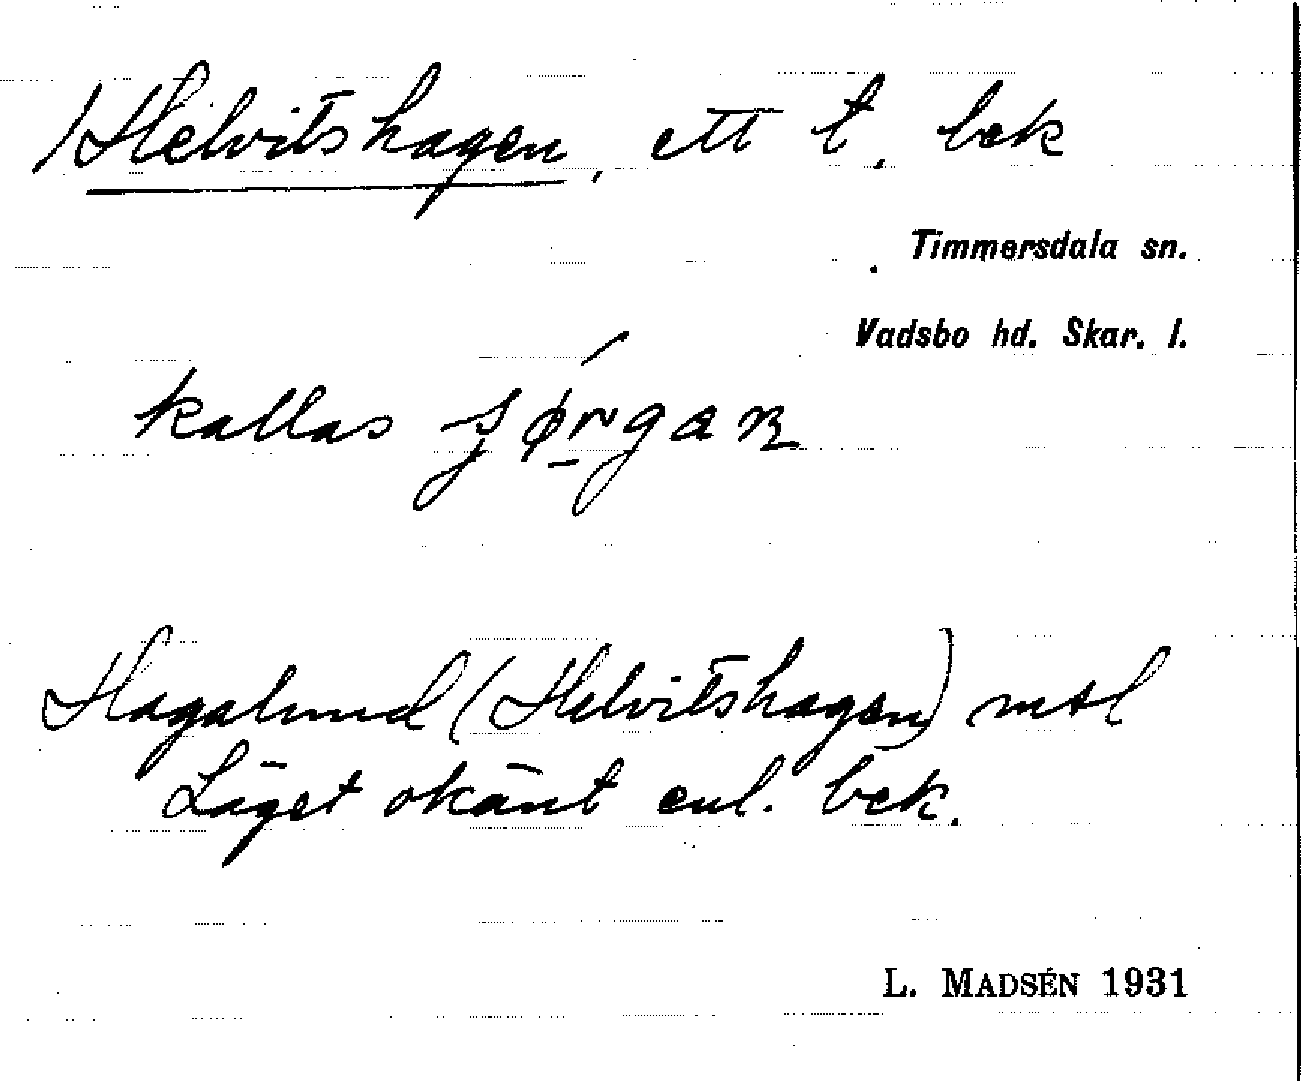 /Helvitshagen, ett t. bek
Timmersdala sn.
Vadsbo hd. Skar. l.
kallas
Hagalund (Helvitshagen) mtl
Läget okänt enl. bek.
L. MADSÉN 1931